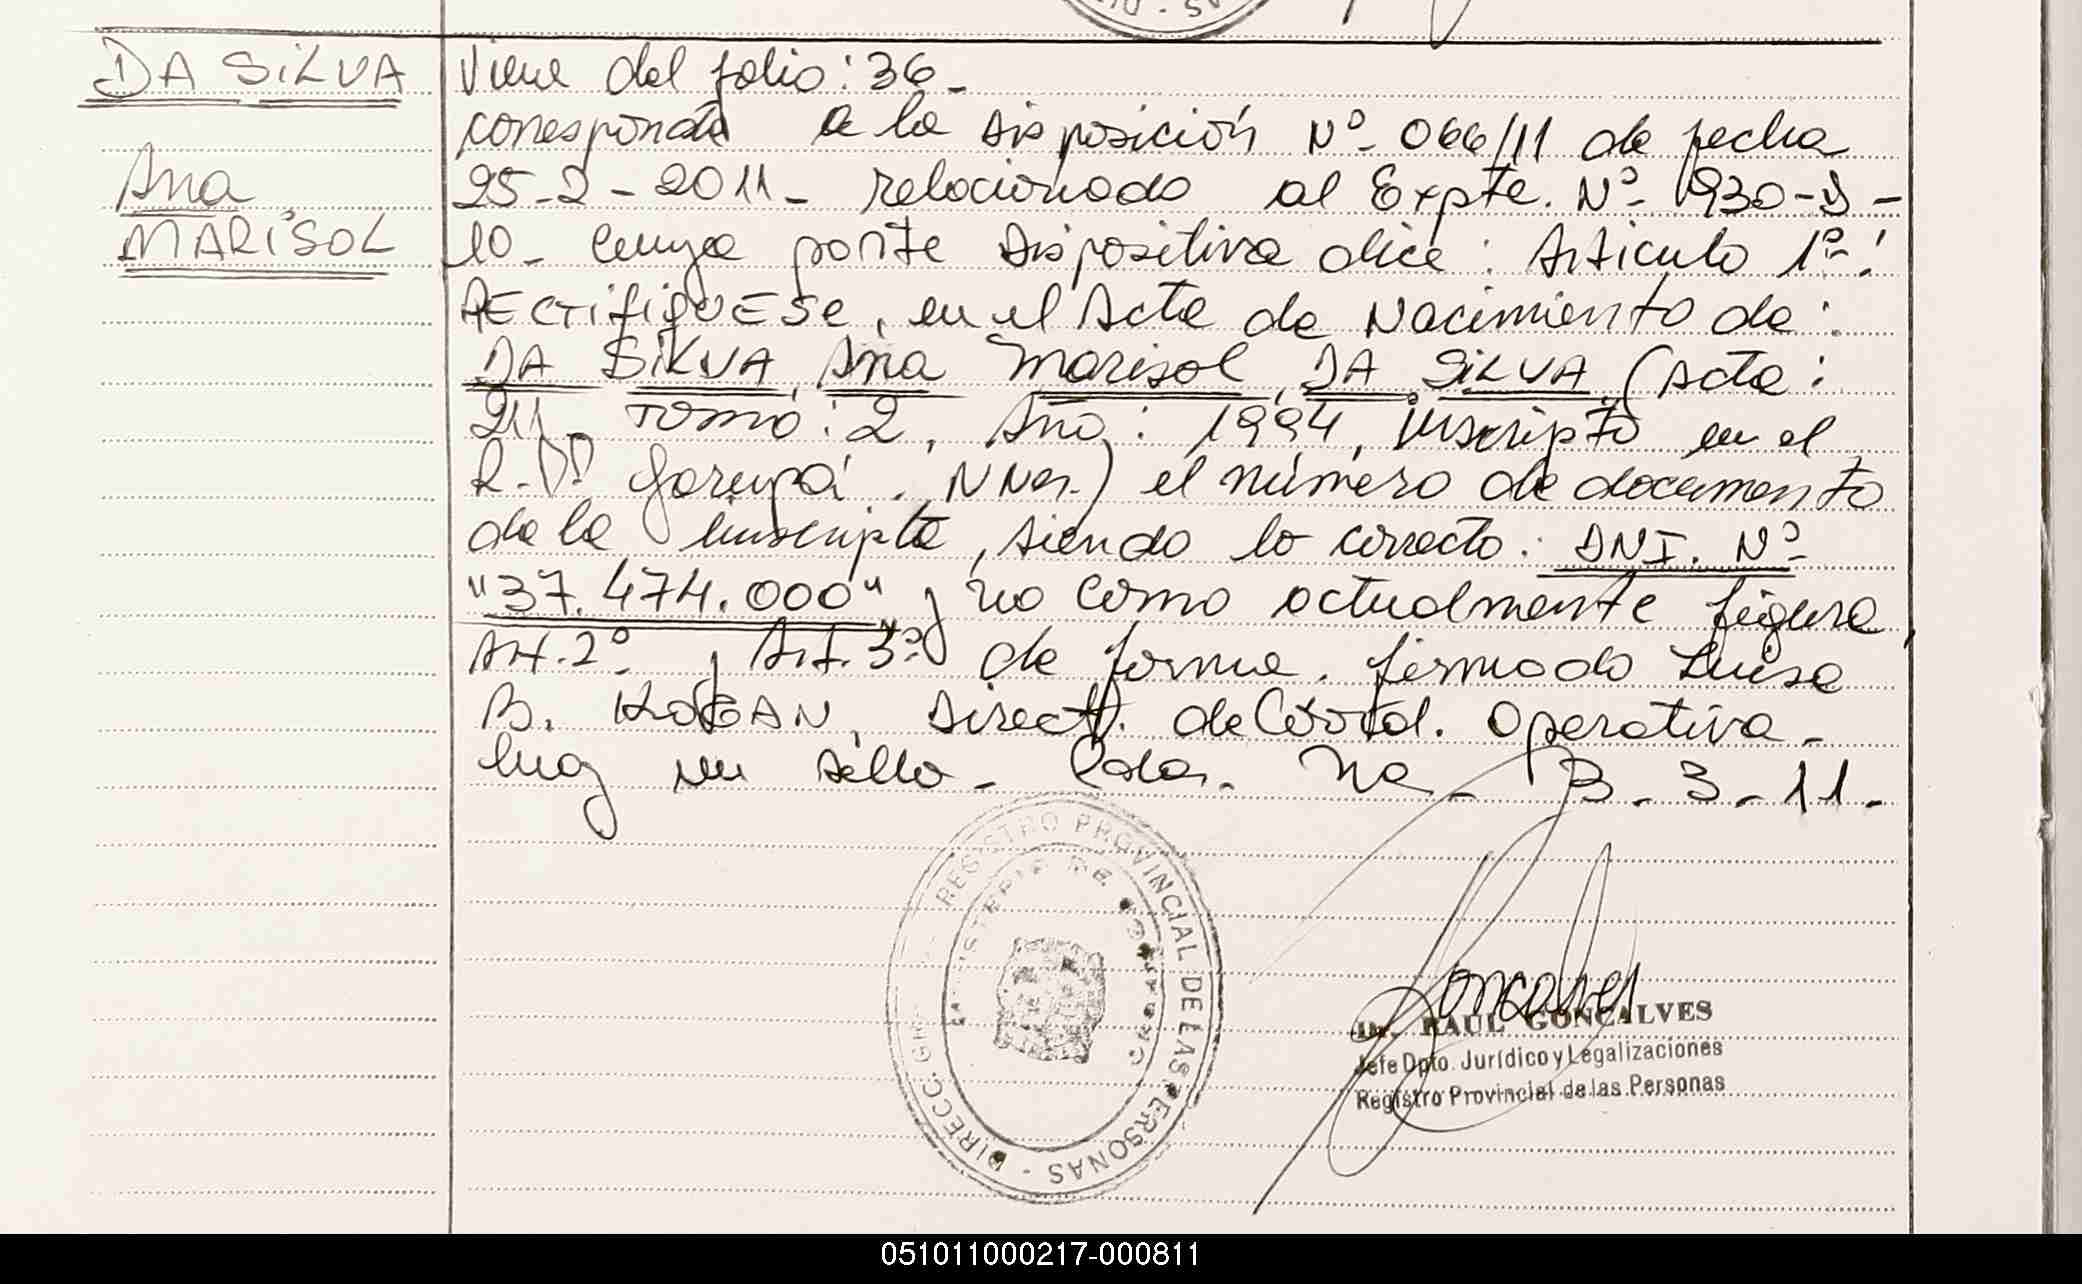 DA SILVA
Ana
MARISOL
Viene del folio: 36_
corresponde a la disposición Nº_ 066/11 de fecha
25_2_2011_ relacionado al Expte. Nº_ 1930-D-
10_ cuya parte dispositiva dice: Articulo 1º_:
RECTifiqUESe, en el Acta de Nacimiento de:
DA SILVA, Ana Marisol, DA SILVA (Acta:
211, Tomo: 2, Año: 1994, inscripto en el
R.PP Garupá. Mnes.) el número de documento
de la inscripta, siendo lo correcto: DNI. Nº_
"37.474.000" y no como actualmente figura,
Art. 2º_ y Art. 3º_ de forme. firmado Luisa
B. KOGAN, Direct. de Coord. Operativa_
hay un sello_ Pdas. Mes_ 3_11_
DIRECC. REGISTRO PROVINCIAL DE LAS PERSONAS -
MINISTERIO DE GOBIERNO
Goncalves
Dr. RAUL GONCALVES
Jefe Dpto. Jurídico y Legalizaciones
Registro Provincial de las Personas
051011000217-000811